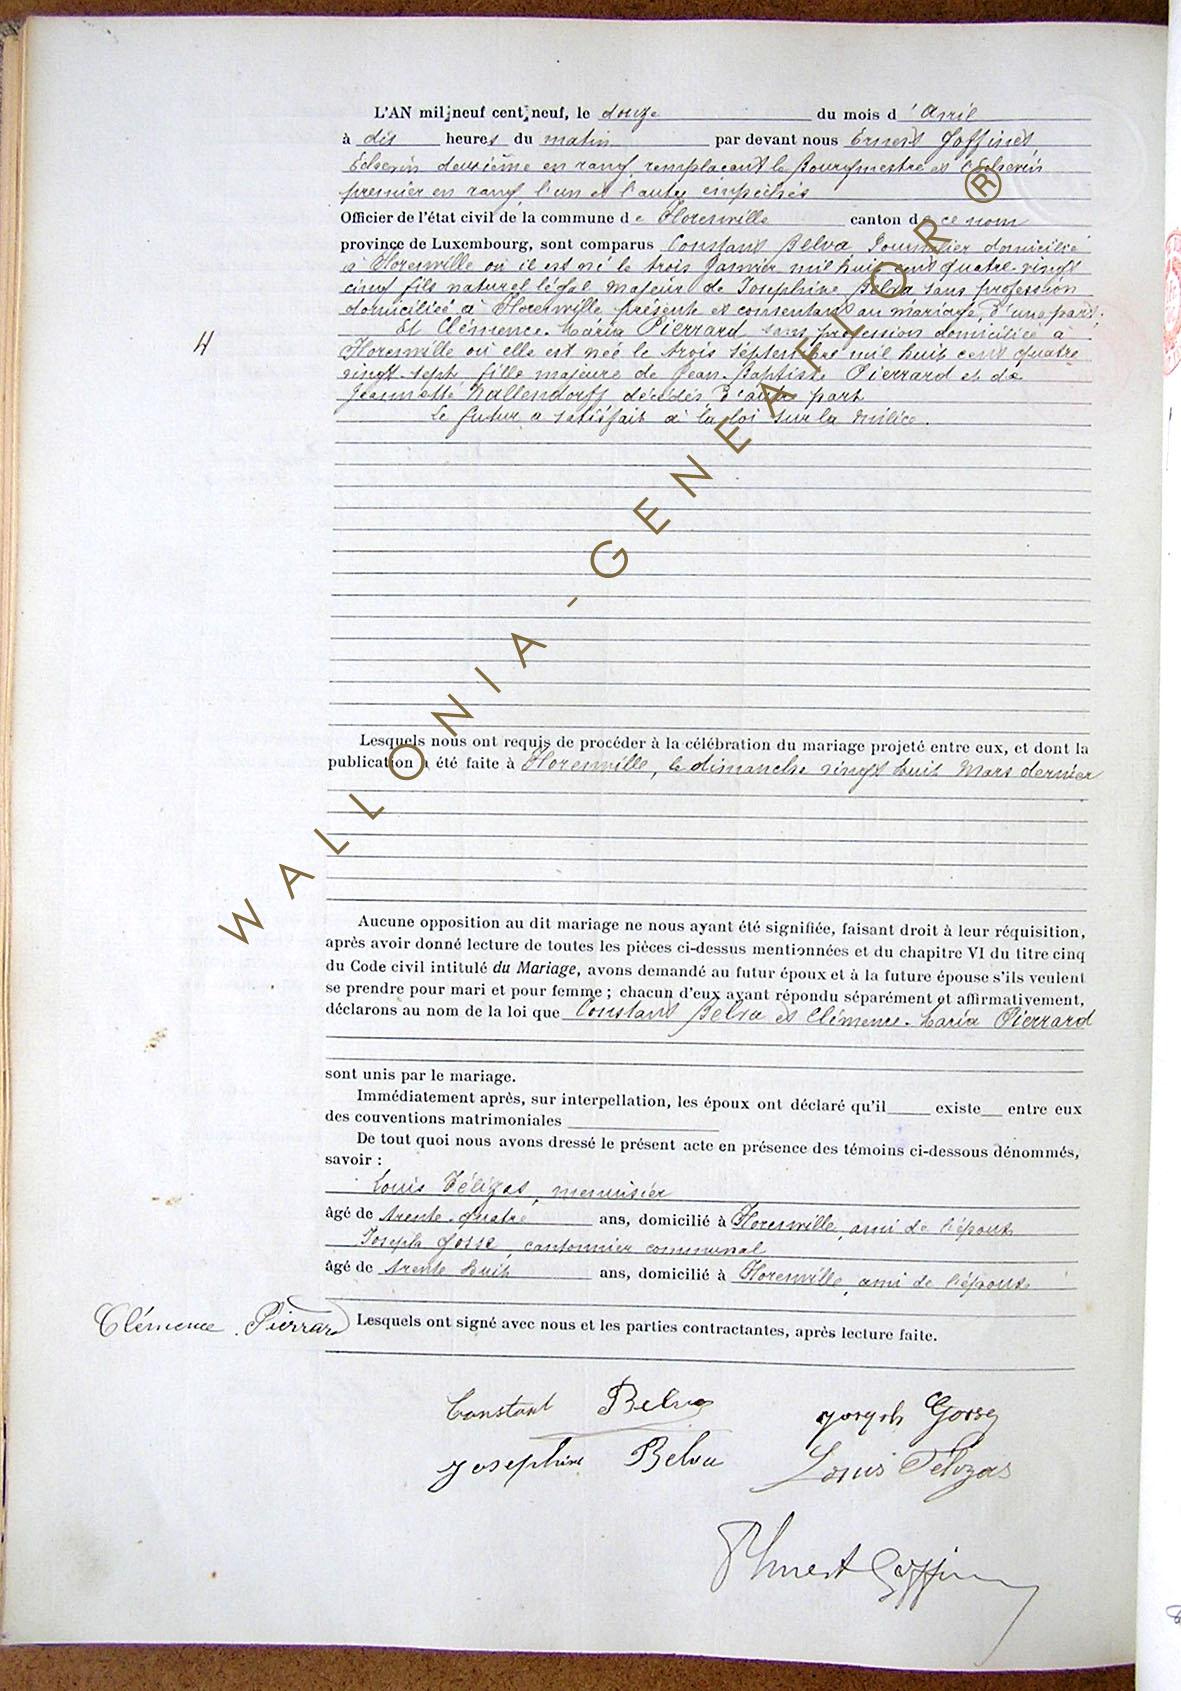 L'AN mil neuf cent neuf, le douze du mois d'Avril
à dix heures du matin par devant nous Ernest Goffinet,
Echevin deuxième en rang, remplaçant le Bourgmestre et l'Echevin
premier en rang, l'un et l'autre empêchés
Officier de l'état civil de la commune de Florenville canton de ce nom
province de Luxembourg, sont comparus Constant Belva Journalier domicilié
à Florenville où il est né le trois Janvier mil huit cent quatre-vingt
cinq fils naturel légal majeur de Joséphine Belva sans profession
domiciliée à Florenville présente et consentant au mariage, d'une part.
Et Clémence-Maria Pierrard sans profession domiciliée à
4
Florenville où elle est née le trois Septembre mil huit cent quatre
vingt-sept, fille majeure de Jean-Baptiste Pierrard et de
Jeannette Wallendorff décédés, D'autre part
Le futur a satisfait à la loi sur la milice.
Lesquels nous ont requis de procéder à la célébration du mariage projeté entre eux, et dont la
publication a été faite à Florenville, le dimanche vingt huit Mars dernier
Aucune opposition au dit mariage ne nous ayant été signifiée, faisant droit à leur réquisition,
après avoir donné lecture de toutes les pièces ci-dessus mentionnées et du chapitre VI du titre cinq
du Code civil intitulé du Mariage, avons demandé au futur époux et à la future épouse s'ils veulent
se prendre pour mari et pour femme ; chacun d'eux ayant répondu séparément et affirmativement,
déclarons au nom de la loi que Constant Belva et Clémence-Maria Pierrard
sont unis par le mariage.
Immédiatement après, sur interpellation, les époux ont déclaré qu'il existe entre eux
des conventions matrimoniales
De tout quoi nous avons dressé le présent acte en présence des témoins ci-dessous dénommés,
savoir :
Louis Télizas, menuisier
âgé de trente-quatre ans, domicilié à Florenville, ami de l'époux
Joseph Gosse, cantonnier communal
âgé de trente huit ans, domicilié à Florenville, ami de l'époux
Clémence Pierrard Lesquels ont signé avec nous et les parties contractantes, après lecture faite.
Constant Belva Joseph Gosse
Josephine Belva Louis Télizas
Ernest Goffinet
WALLONIA-GENEAFLOR ®